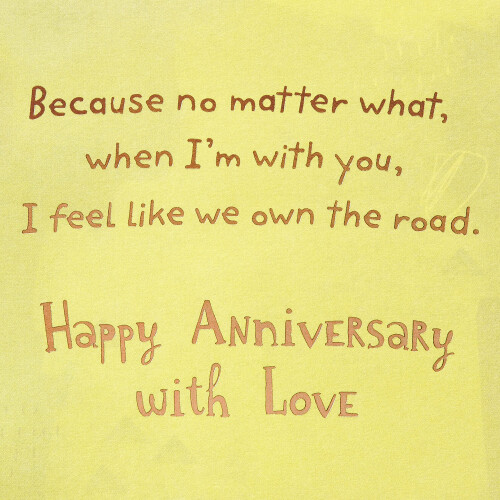 Because no matter what,
when I'm with you,
I feel like we own the road.
Happy Anniversary
with Love